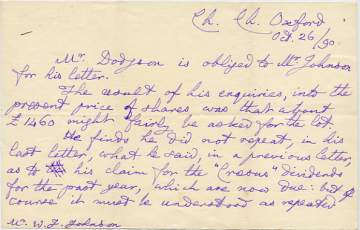 Ch. Ch. Oxford
Oct. 26/90.
Mr. Dodgson is obliged to Mr Johnson
for his letter.
The result of his enquiries, into the
present price of shares, was that about
£1460 might fairly be asked for the lot.
He finds he did not repeat, in his
last letter, what he said, in a previous letter,
as to his claim for the "
" dividends
for the past year, which are now due: but of
course it must be understood as repeated
Mr. W. J. Johnson